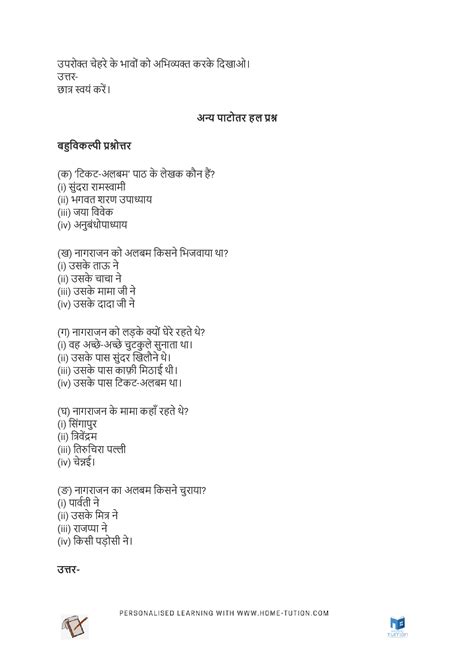 उपरोक्त चेहरे के भावों को अभिव्यक्त करके दिखाओ।
उत्तर-
छात्र स्वयं करें।
अन्य पाटोतर हल प्रश्न
बहुविकल्पी प्रश्नोत्तर
(क) 'टिकट-अलबम' पाठ के लेखक कौन हैं?
(i) सुंदरा रामस्वामी
(ii) भगवत शरण उपाध्याय
(iii) जया विवेक
(iv) अनुबंधोपाध्याय
(ख) नागराजन को अलबम किसने भिजवाया था?
(i) उसके ताऊ ने
(ii) उसके चाचा ने
(iii) उसके मामा जी ने
(iv) उसके दादा जी ने
(ग) नागराजन को लड़के क्यों घेरे रहते थे?
(i) वह अच्छे-अच्छे चुटकुले सुनाता था।
(ii) उसके पास सुंदर खिलौने थे।
(iii) उसके पास काफ़ी मिठाई थी।
(iv) उसके पास टिकट-अलबम था।
(घ) नागराजन के मामा कहाँ रहते थे?
(i) सिंगापुर
(ii) त्रिवेंद्रम
(iii) तिरुचिरा पल्ली
(iv) चेन्नई।
(ङ) नागराजन का अलबम किसने चुराया?
(i) पार्वती ने
(ii) उसके मित्र ने
(iii) राजप्पा ने
(iv) किसी पड़ोसी ने।
उत्तर-
PERSONALISED LEARNING WITH WWW.HOME-TUTION.COM